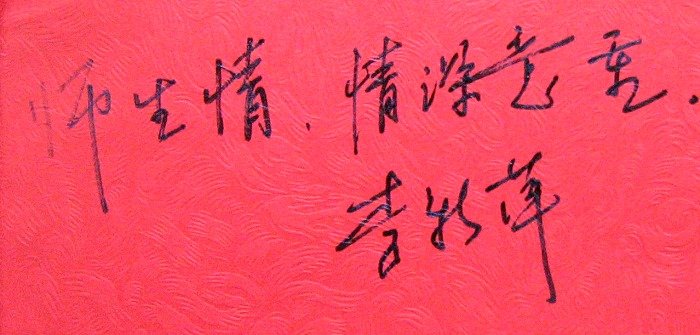 师生情.情深意重.
李 萍